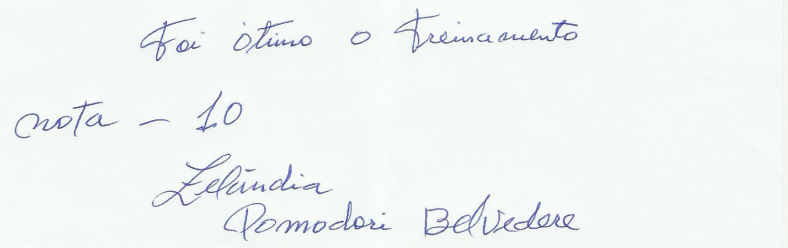 Foi ótimo o treinamento
nota - 10
Zelândia
Pomodori Belvedere